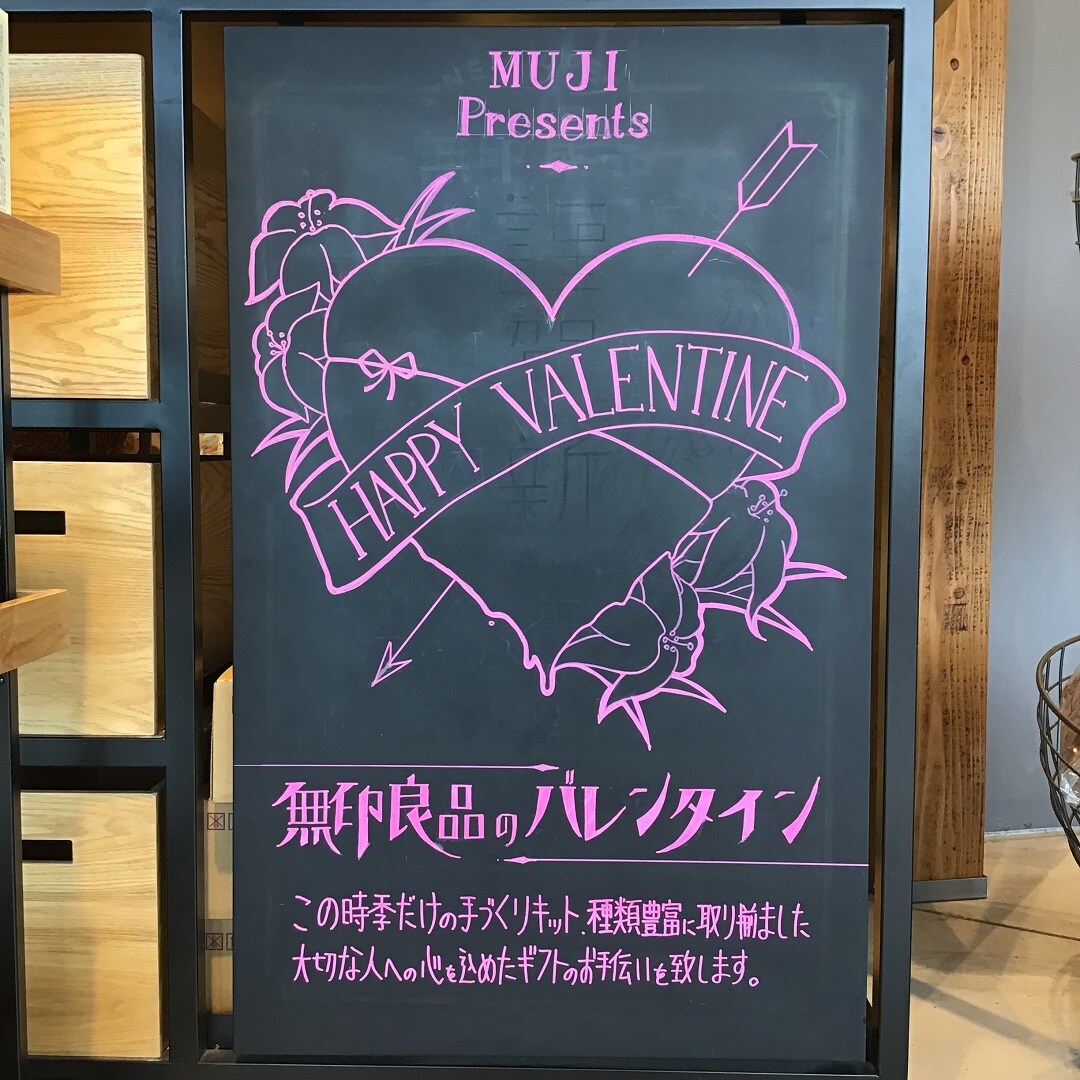 MUJI
Presents
HAPPY VALENTINE
無印良品のバレンタイン
この時季だけの手づくりキット、種類豊富に取り揃ました
大切な人への心を込めたギフトのお手伝いを致します。